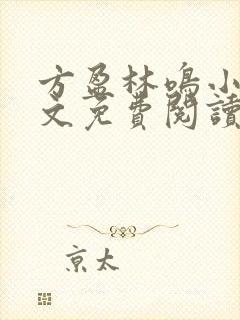 方盈林鳴小
文免費閱讀
京太